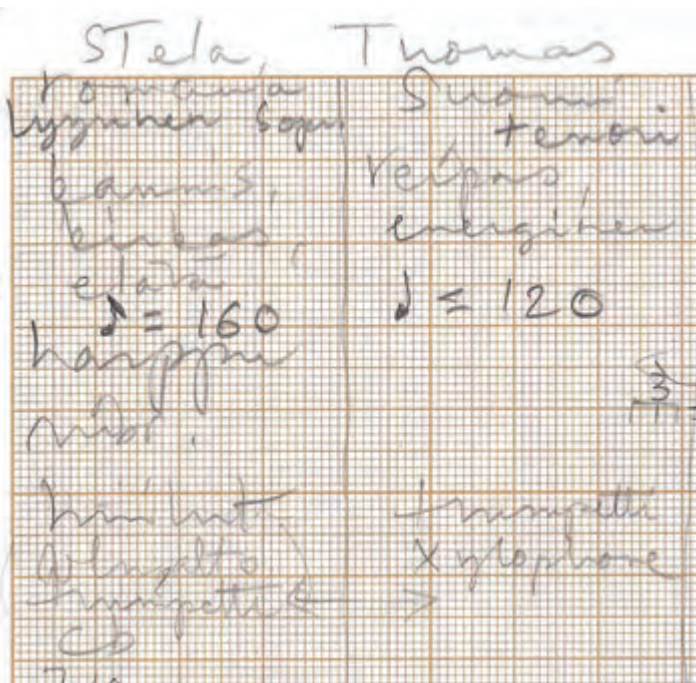 Stela,
romania
Lyyrinen sopr.
kaunis,
kirkas,
elävä
♪ = 160
harppu
huilut
trumpetti
Cb
Thomas
Suomi
tenori
reipas,
energinen
♩ = 120
3
trumpetti
xylophone